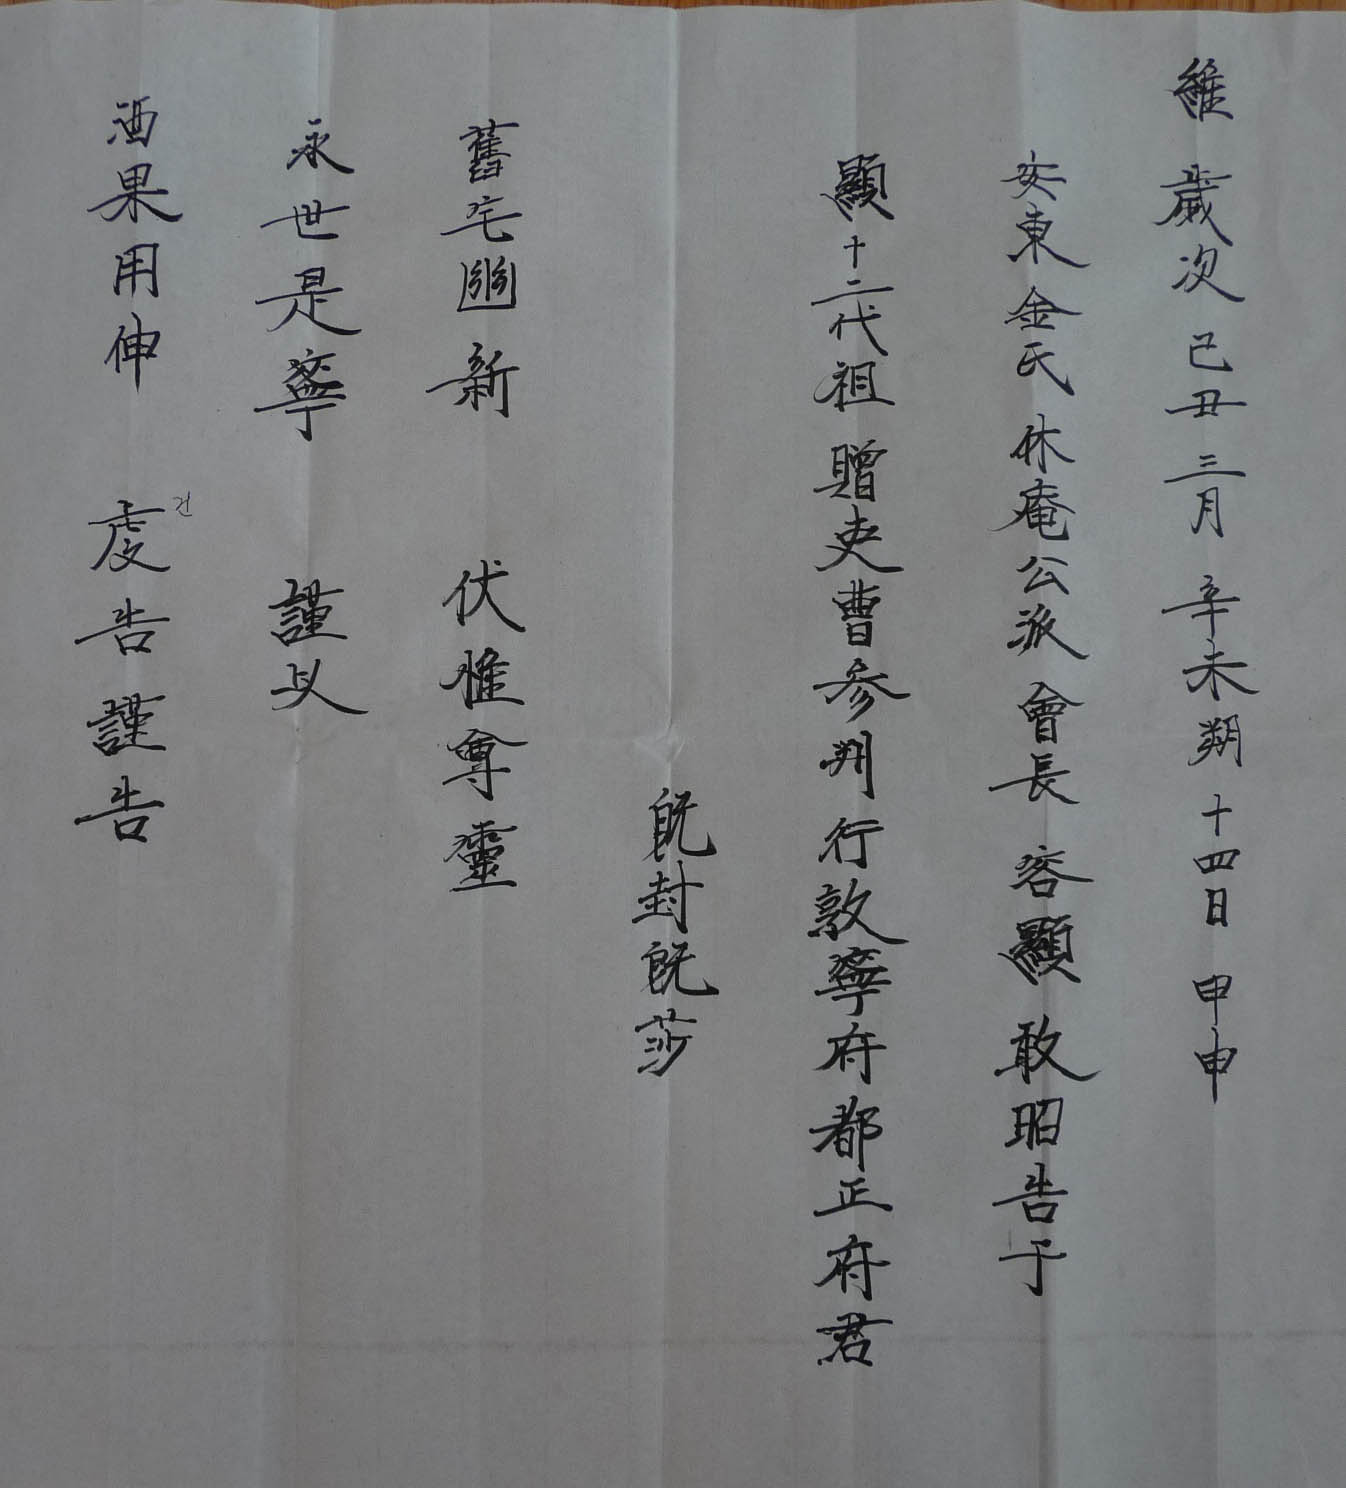 維 歲次 己丑 三月 辛未朔 十四日 甲申
安東金氏休庵公派 會長 容顯 敢昭告于
顯十二代祖 贈吏曹參判行敦寧府都正府君
旣封旣莎
舊宅 新 伏惟尊靈
永世是寧 謹以
酒果用伸 虔告謹告
건